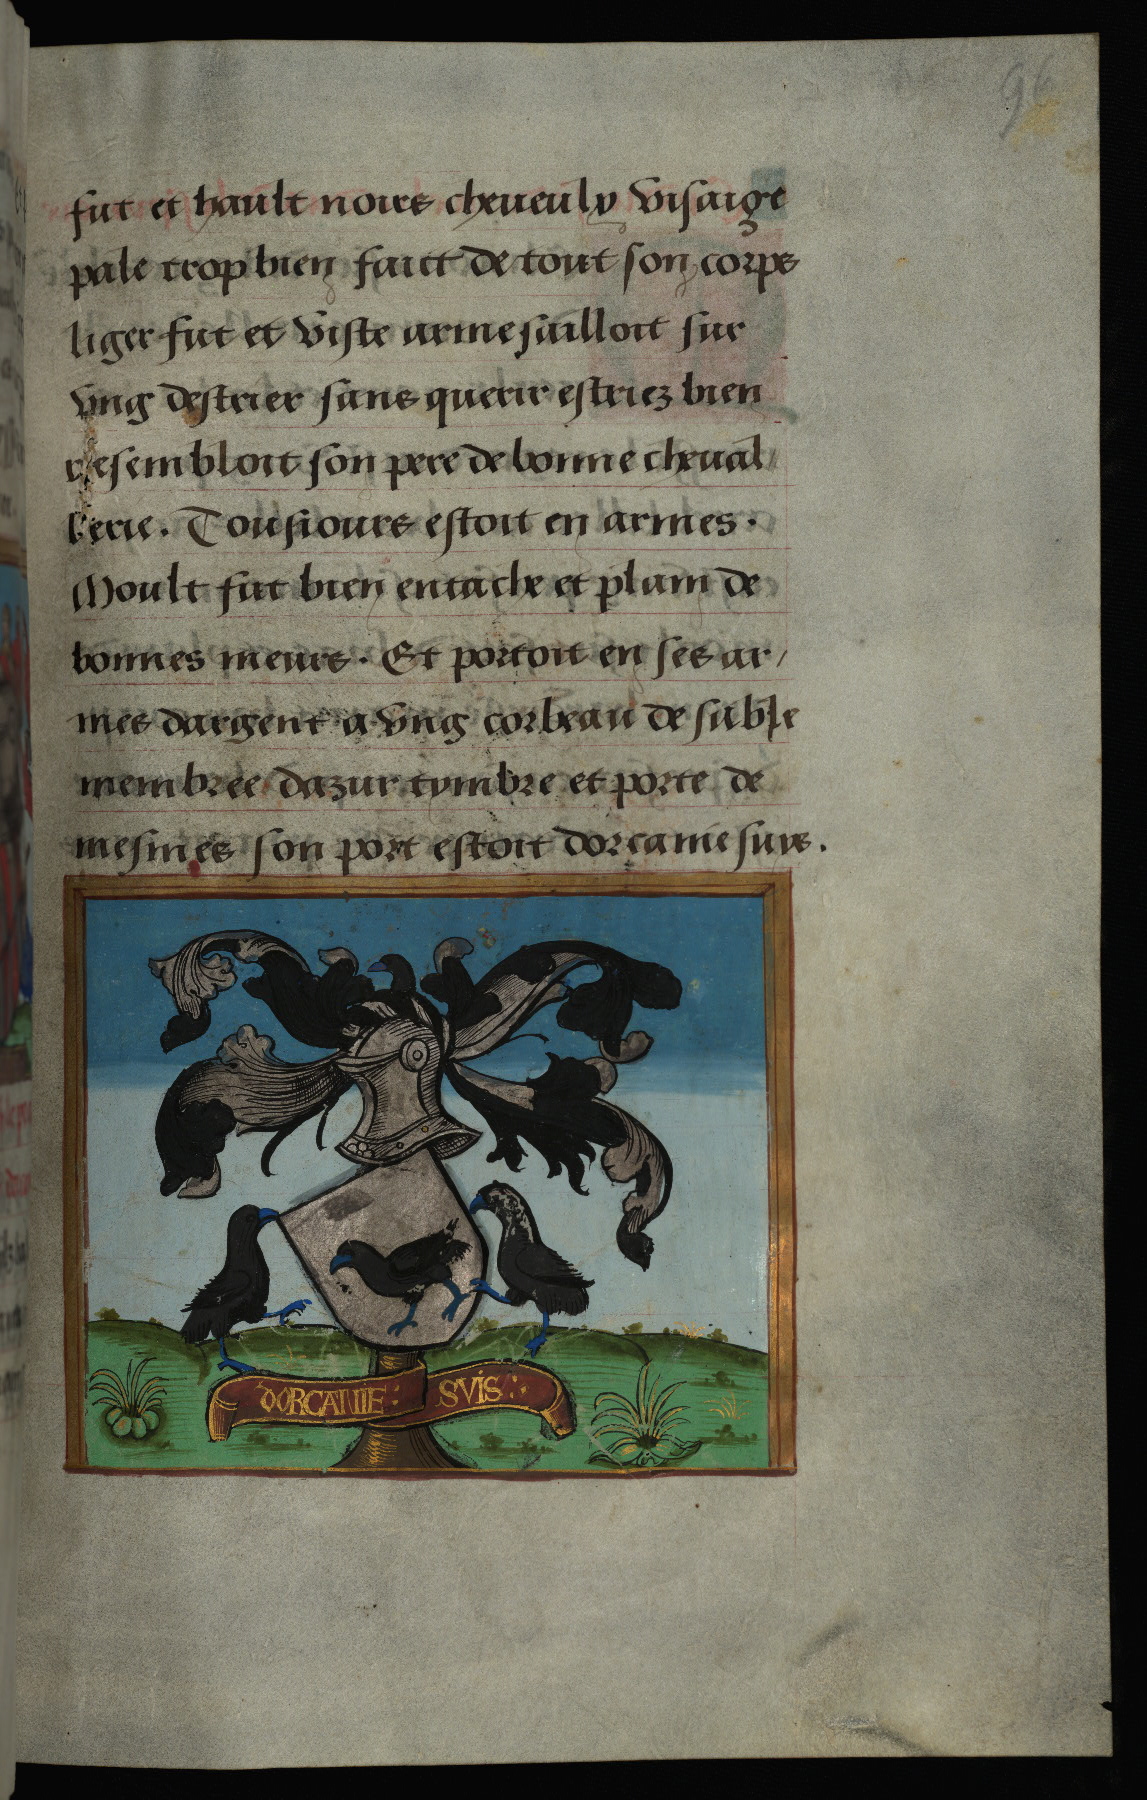 96
fut et hault noirs cheueulx visaige
pale trop bien faict de tout son corps
liger fut et viste arme sailloit sur
vng destrier sans querir estriez bien
resembloit son pere de bonne cheual/
lerie. Tousiours estoit en armes.
Moult fut bien entache et plain de
bonnes meurs. Et portoit en ses ar/
mes dargent a vng corbeau de sable
membree dazur tymbre et porte de
mesmes son port estoit dorcanie suis.
DORCANIE: SVIS:.